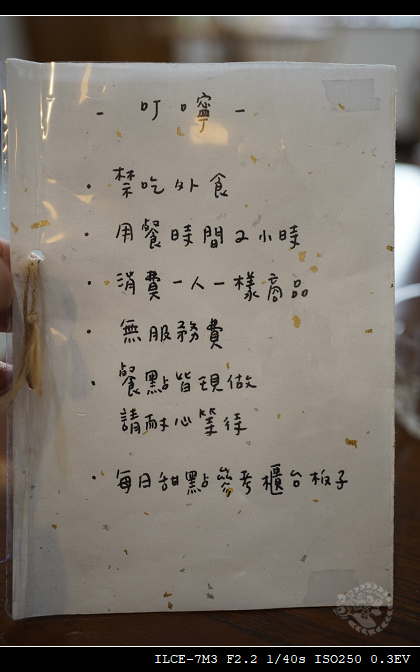 - 叮嚀 -
· 禁吃外食
· 用餐時間2小時
· 消費一人一樣商品
· 無服務費
· 餐點皆現做
請耐心等待
· 每日甜點參考櫃台板子
ILCE-7M3 F2.2 1/40s ISO250 0.3EV